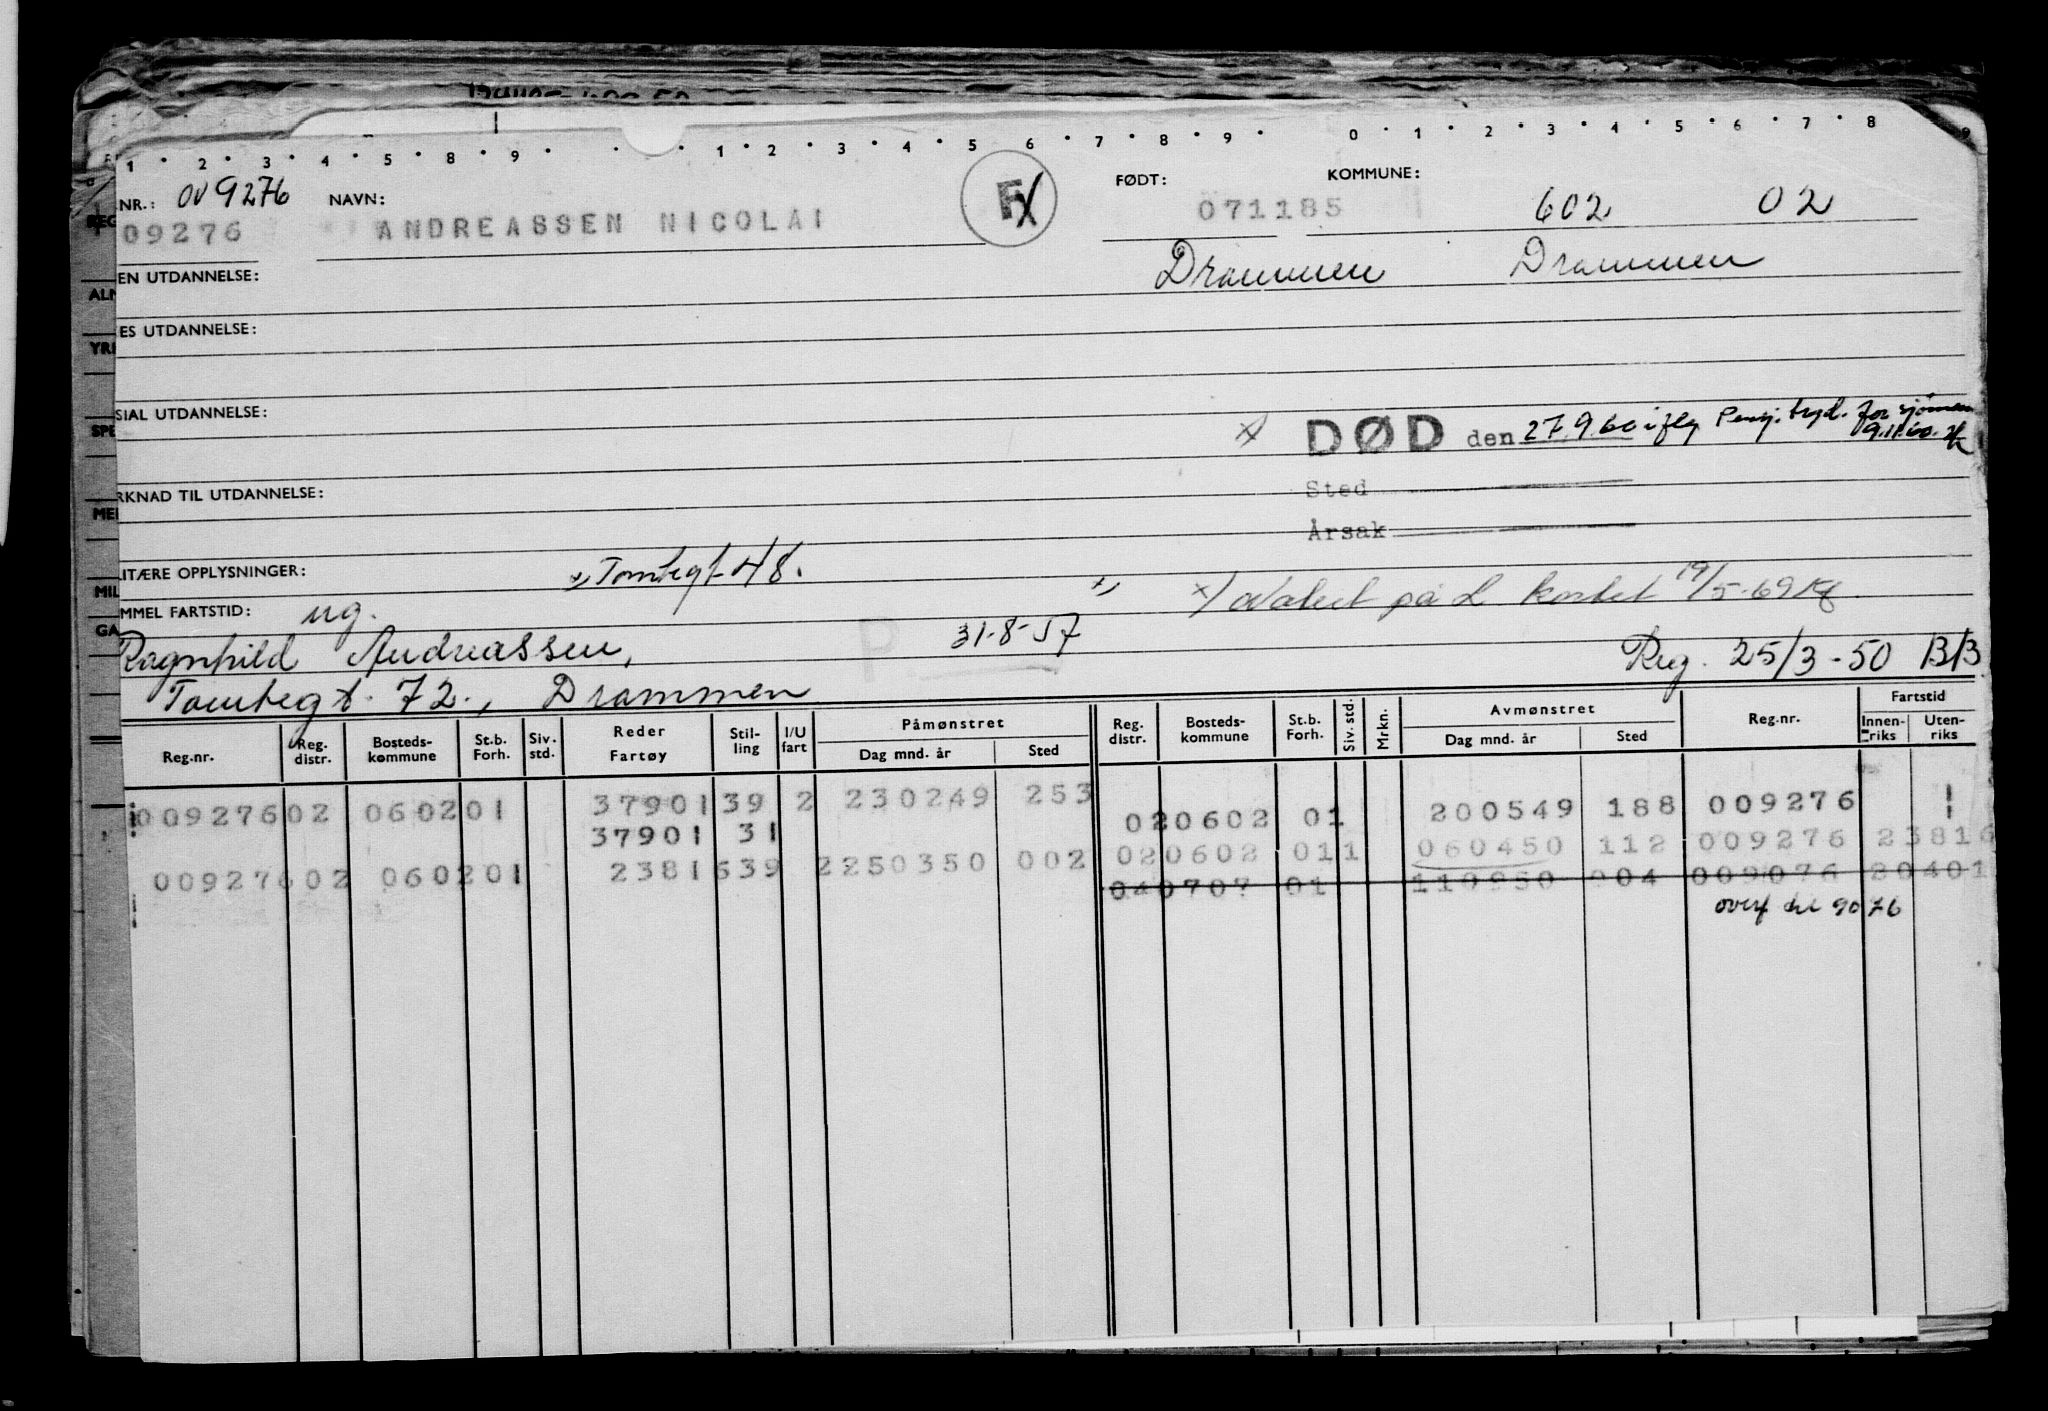 1 · 2 · 3 · 4 · 5 · 8 · 9 · · · 1 · 2 · 3 · 4 · 5 · 6 · 7 · 8 · 9 · 0 · 1 · 2 · 3 · 4 · 5 · 6 · 7 · 8 9
NR.: 009276 NAVN: F FØDT: KOMMUNE:
09276 ANDREASSEN NICOLAI 071185 602 02
EN UTDANNELSE: Drammen Drammen
ES UTDANNELSE:
SIAL UTDANNELSE:
x DØD den 27.9.60 iflg Pensj. tryd. for sjømenn
9.11.60.
RKNAD TIL UTDANNELSE: Sted
Årsak
LITÆRE OPPLYSNINGER: Tomtegt 48.
x/ Notert på L kortet 19/5-69
MMEL FARTSTID: ug.
Ragnhild Andreassen, P. 31-8-57 Reg. 25/3-50 B/B
Tomtegt. 72., Drammen
Reg.nr. Reg. distr. Bosteds- kommune St.b. Forh. Siv. std. Reder Fartøy Stil- ling I/U fart Påmønstret Dag mnd. år Sted Reg. distr. Bosteds- kommune St.b. Forh. Siv. std. Mrkn. Avmønstret Dag mnd. år Sted Reg.nr. Fartstid Innen- riks Uten- riks
009276 02 0602 01 37901 39 2 230249 253 02 0602 01 200549 188 009276 1
37901 31
009276 02 0602 01 23816 39 2 250350 002 02 0602 01 1 060450 112 009276 23816
04 0707 01 110950 904 009076 20401
overf til 9076